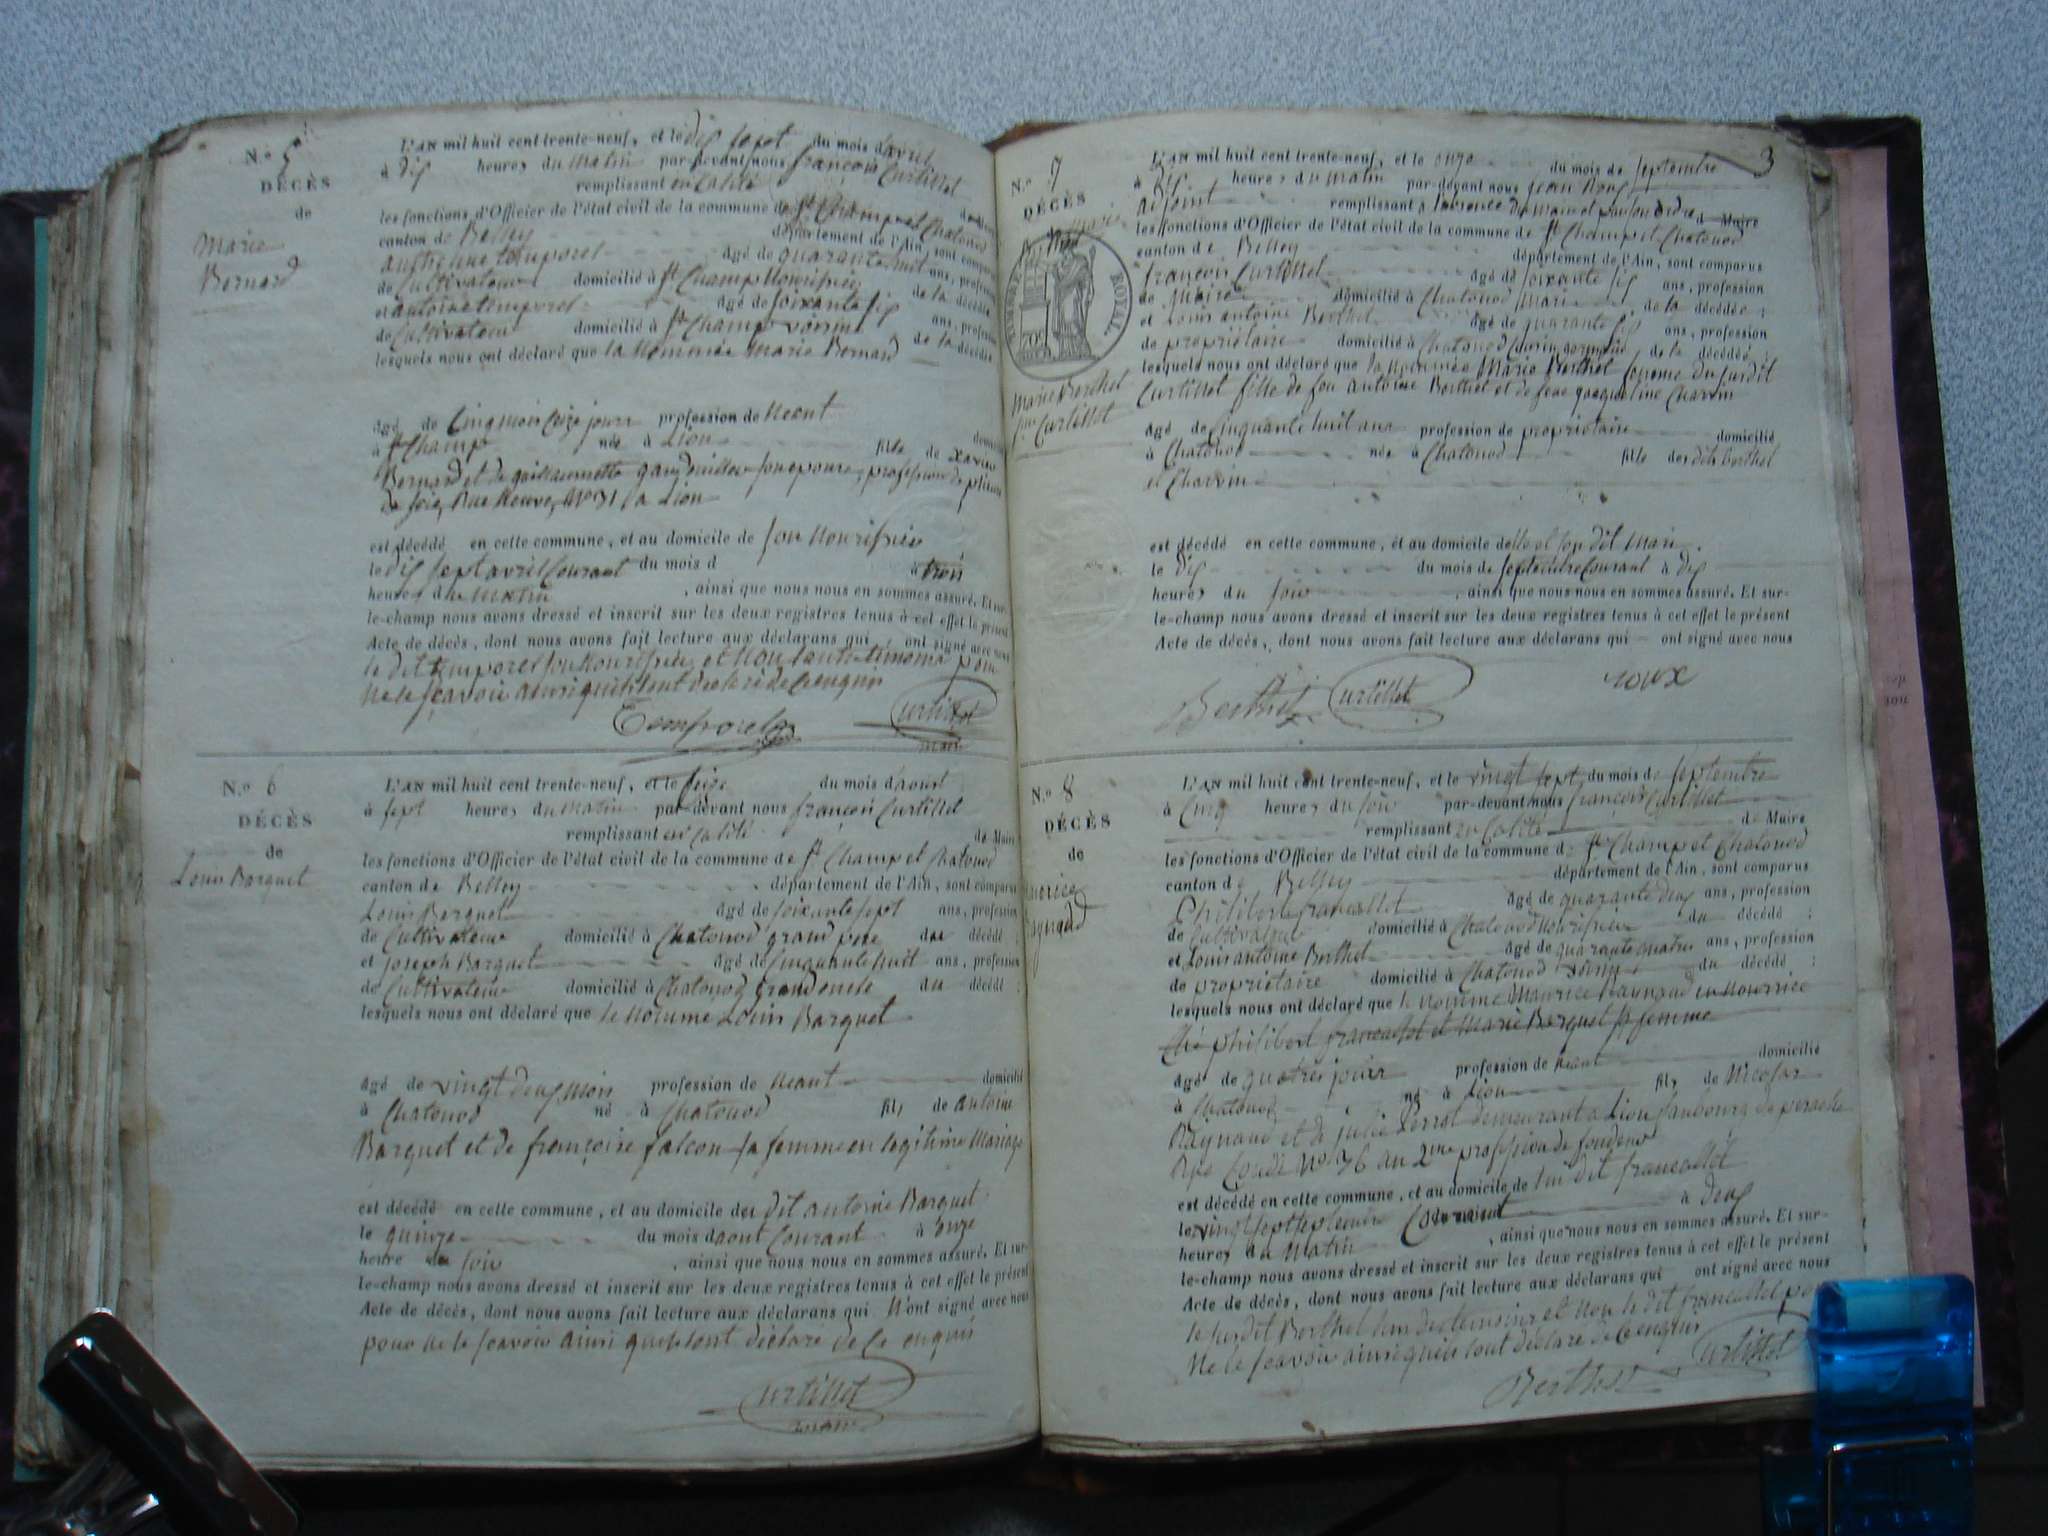 N.o 5
DÉCÈS
de
Marie
Bernard
L'AN mil huit cent trente-neuf, et le dix sept du mois d'avril
à dix heures du matin par-devant nous françois Curtillet
remplissant en calité
les fonctions d'Officier de l'état civil de la commune de St Champ et Chatonod
canton de Belley département de l'Ain, sont comparus
temporel âgé de quarante huit ans, profession
de Cultivateur domicilié à St Champ Nourissier de la décédée
et antoine temporel âgé de soixante six ans, profession
de Cultivateur domicilié à St Champ voisin de la décédée
lesquels nous ont déclaré que la Nommée Marie Bernard
âgé de Cinq mois seize jours profession de Neant domicilié
à St Champ née à Lion fille de xavier
Bernard et de guillaumette son epouse, profession de
de soie, Rue Neuve, No 31 à Lion
est décédé en cette commune, et au domicile de son Nourissier
le dix sept avril Courant du mois d à trois
heures du Matin, ainsi que nous nous en sommes assuré. Et sur-
le-champ nous avons dressé et inscrit sur les deux registres tenus à cet effet le présent
Acte de décès, dont nous avons fait lecture aux déclarans qui ont signé avec nous
le dit temporel son Nourissier et Non l'autre témoin pour
Ne le sçavoir ainsi qu'il l'ont declaré de Ce enquis
Temporel Curtillet
maire
N.o 6
DÉCÈS
de
Louis Barquet
L'AN mil huit cent trente-neuf, et le seize du mois d'aoust
à sept heures du Matin par-devant nous françois Curtillet
remplissant en Calité de Maire
les fonctions d'Officier de l'état civil de la commune de St Champ et Chatonod
canton de Belley département de l'Ain, sont comparus
Louis Barquet âgé de soixante sept ans, profession
de Cultivateur domicilié à Chatonod grand père du décédé
et joseph Barquet âgé de Cinquante huit ans, profession
de Cultivateur domicilié à Chatonod grand oncle du décédé :
lesquels nous ont déclaré que le Nommé Louis Barquet
âgé de vingt deux Mois profession de Neant domicilié
à Chatonod né à Chatonod fils de antoine
Barquet et de françoise falcon sa femme en legitime Mariage
est décédé en cette commune, et au domicile du dit antoine Barquet
le quinze du mois d'aout Courant à onze
heure du soir, ainsi que nous nous en sommes assuré. Et sur-
le-champ nous avons dressé et inscrit sur les deux registres tenus à cet effet le présent
Acte de décès, dont nous avons fait lecture aux déclarans qui N'ont signé avec nous
pour ne le sçavoir ainsi qu'il l'ont déclaré de Ce enquis
Curtillet
maire
3
N.o 7
DÉCÈS
TIMBRE ROYAL
70c
Marie Berthet
fme Curtillet
L'AN mil huit cent trente-neuf, et le onze du mois de septembre
à dix heures du matin par-devant nous jean Roux
adjoint remplissant à l'absence du maire et par son ordre de Maire
les fonctions d'Officier de l'état civil de la commune de St Champ et Chatonod
canton de Belley département de l'Ain, sont comparus
françois Curtillet âgé de soixante six ans, profession
de Maire domicilié à Chatonod Mari de la décédée :
et Louis antoine Berthet âgé de quarante six ans, profession
de propriétaire domicilié à Chatonod Cousin germain de la décédée :
lesquels nous ont déclaré que la Nommée Marie Berthet femme du susdit
Curtillet fille de feu antoine Berthet et de feue jacqueline Charvin
âgé de Cinquante huit ans profession de propriétaire domicilié
à Chatonod née à Chatonod fille des dits berthet
et Charvin
est décédé en cette commune, et au domicile de son dit Mari
le dix du mois de septembre Courant à dix
heures du soir, ainsi que nous nous en sommes assuré. Et sur-
le-champ nous avons dressé et inscrit sur les deux registres tenus à cet effet le présent
Acte de décès, dont nous avons fait lecture aux déclarans qui ont signé avec nous
Berthet Curtillet roux
N.o 8
DÉCÈS
de
Maurice
Raynaud
L'AN mil huit cent trente-neuf, et le vingt sept du mois de septembre
à Cinq heures du soir par-devant nous françois Curtillet
remplissant en Calité de Maire
les fonctions d'Officier de l'état civil de la commune de St Champ et Chatonod
canton de Belley département de l'Ain, sont comparus
Philibert francallet âgé de quarante deux ans, profession
de Cultivateur domicilié à Chatonod Nourissier du décédé :
et Louis antoine Berthet âgé de quarante quatre ans, profession
de propriétaire domicilié à Chatonod voisin du décédé :
lesquels nous ont déclaré que le Nommé Maurice Raynaud en Nourrice
Ché philibert francallet et Marie Barquet sa femme
âgé de quatres jours profession de Neant domicilié
à Chatonod né à Lion fils de Nicolas
Raynaud et de julie Perrot demeurant à Lion faubourg de perache
Rue Condé No 76 au 2me profession de fondeur
est décédé en cette commune, et au domicile de lui dit francallet
le vingt sept septembre Courant à deux
heures du Matin, ainsi que nous nous en sommes assuré. Et sur-
le-champ nous avons dressé et inscrit sur les deux registres tenus à cet effet le présent
Acte de décès, dont nous avons fait lecture aux déclarans qui ont signé avec nous
le susdit Berthet l'un des temoins et Non le dit francallet pour
Ne le sçavoir ainsi qu'il l'ont déclaré de Ce enquis
Berthet Curtillet